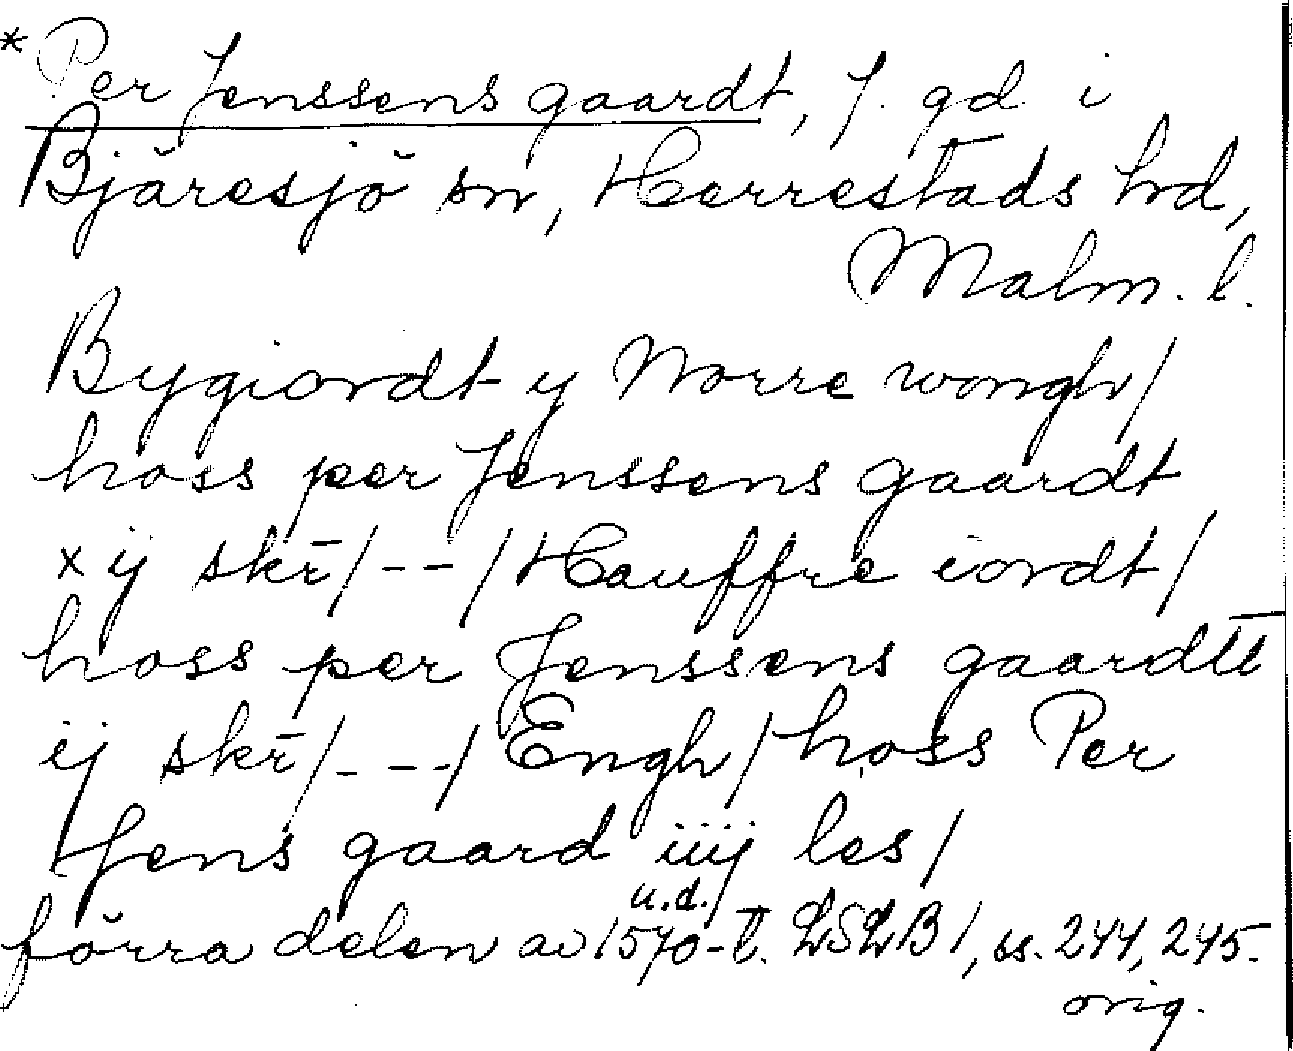 * Per Jenssens gaardt, f. gd i
Bjäresjö sn, Herrestads hd,
Malm. l.
Bygiordt y Norre wongh/
hoss per Jenssens gaardt
xij skr̄/--/Hauffre iordt/
hoss per Jenssens gaardtt
ij skr̄/---/Engh/hoss Per
Jens gaard iiij les/
u.d./
förra delen av 1570-t. LSLB 1, ss. 244, 245.
orig.